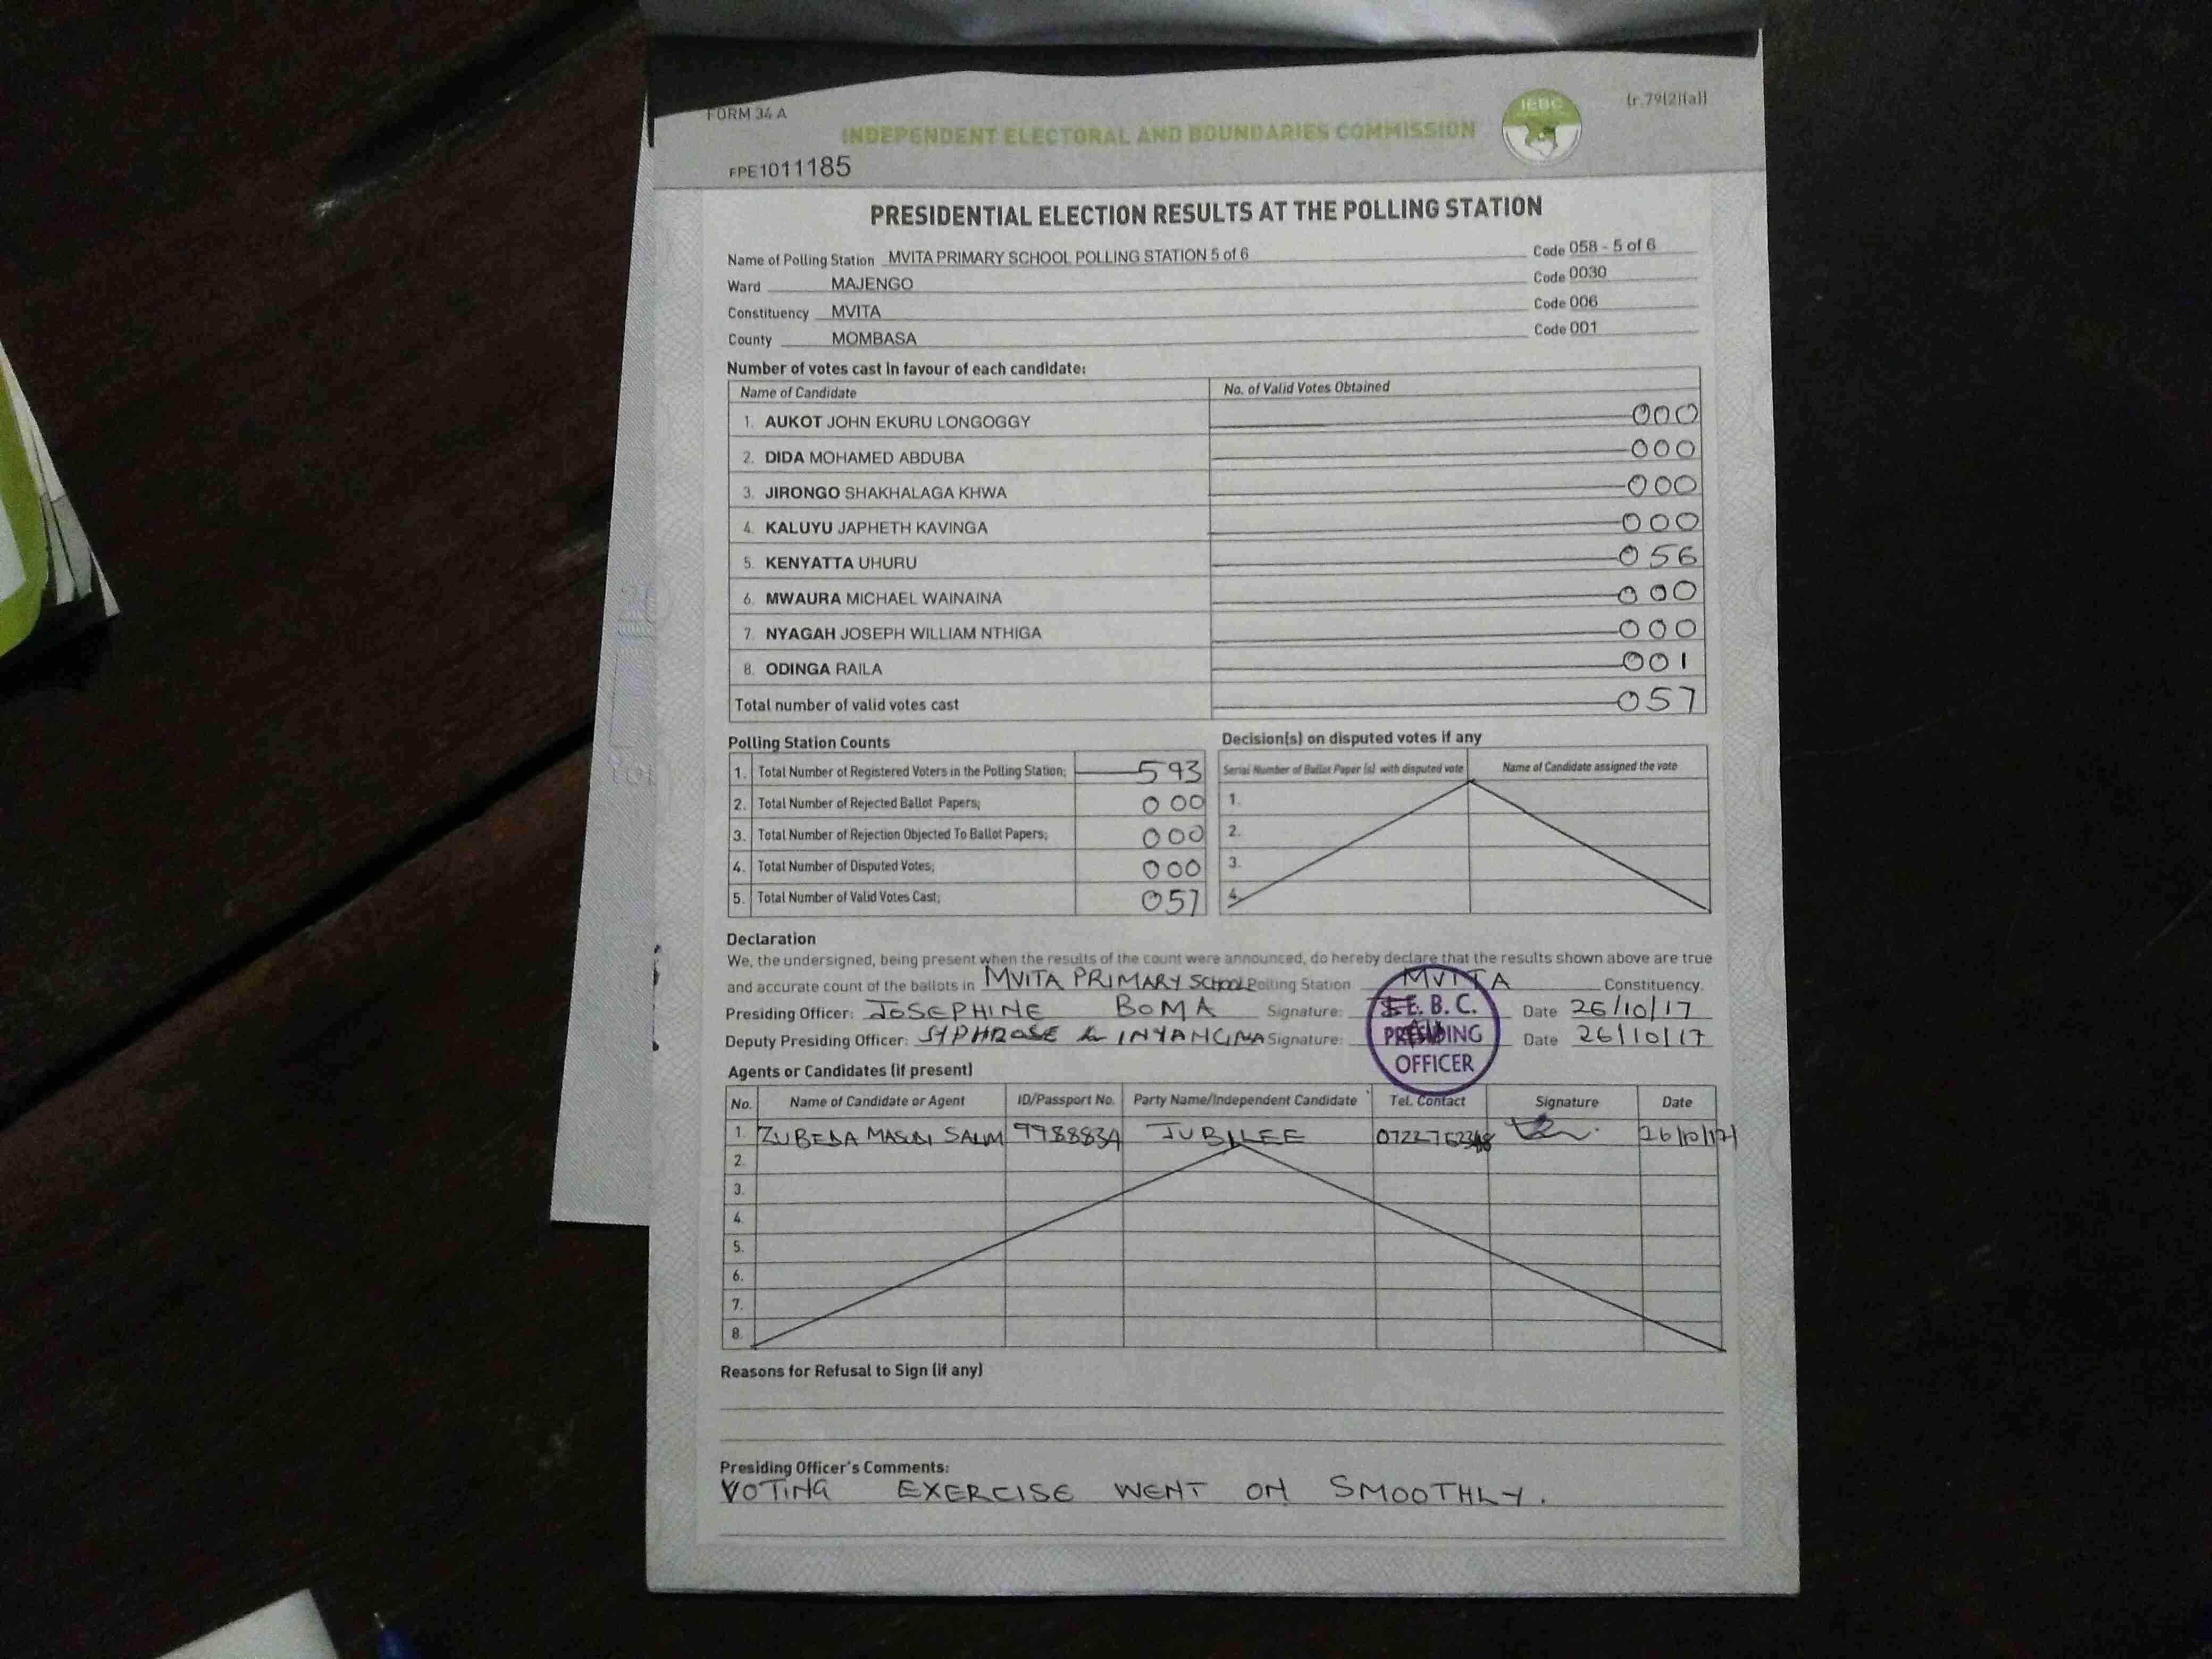 FORM 34 A
(r.79(2)(a))
IEBC
INDEPENDENT ELECTORAL AND BOUNDARIES COMMISSION
FPE1011185
PRESIDENTIAL ELECTION RESULTS AT THE POLLING STATION
Name of Polling Station MVITA PRIMARY SCHOOL POLLING STATION 5 of 6 Code 058 - 5 of 6
Ward MAJENGO Code 0030
Constituency MVITA Code 006
County MOMBASA Code 001
Number of votes cast in favour of each candidate:
Name of Candidate No. of Valid Votes Obtained
1. AUKOT JOHN EKURU LONGOGGY 000
2. DIDA MOHAMED ABDUBA 000
3. JIRONGO SHAKHALAGA KHWA 000
4. KALUYU JAPHETH KAVINGA 000
5. KENYATTA UHURU 056
6. MWAURA MICHAEL WAINAINA 000
7. NYAGAH JOSEPH WILLIAM NTHIGA 000
8. ODINGA RAILA 001
Total number of valid votes cast 057
Polling Station Counts
1. Total Number of Registered Voters in the Polling Station; 593
2. Total Number of Rejected Ballot Papers; 000
3. Total Number of Rejection Objected To Ballot Papers; 000
4. Total Number of Disputed Votes; 000
5. Total Number of Valid Votes Cast; 057
Decision(s) on disputed votes if any
Serial Number of Ballot Paper (s) with disputed vote Name of Candidate assigned the vote
1.
2.
3.
4.
Declaration
We, the undersigned, being present when the results of the count were announced, do hereby declare that the results shown above are true
and accurate count of the ballots in MVITA PRIMARY SCHOOL Polling Station MVITA Constituency.
Presiding Officer: JOSEPHINE BOMA Signature: Date 26/10/17
Deputy Presiding Officer: Signature: Date 26/10/17
I.E.B.C.
PRESIDING
OFFICER
Agents or Candidates (if present)
No. Name of Candidate or Agent ID/Passport No. Party Name/Independent Candidate Tel. Contact Signature Date
1 ZUBEDA SALIM JUBILEE 26/10/17
2.
3.
4.
5.
6.
7.
8.
Reasons for Refusal to Sign (if any)
Presiding Officer's Comments:
VOTING EXERCISE WENT ON SMOOTHLY.